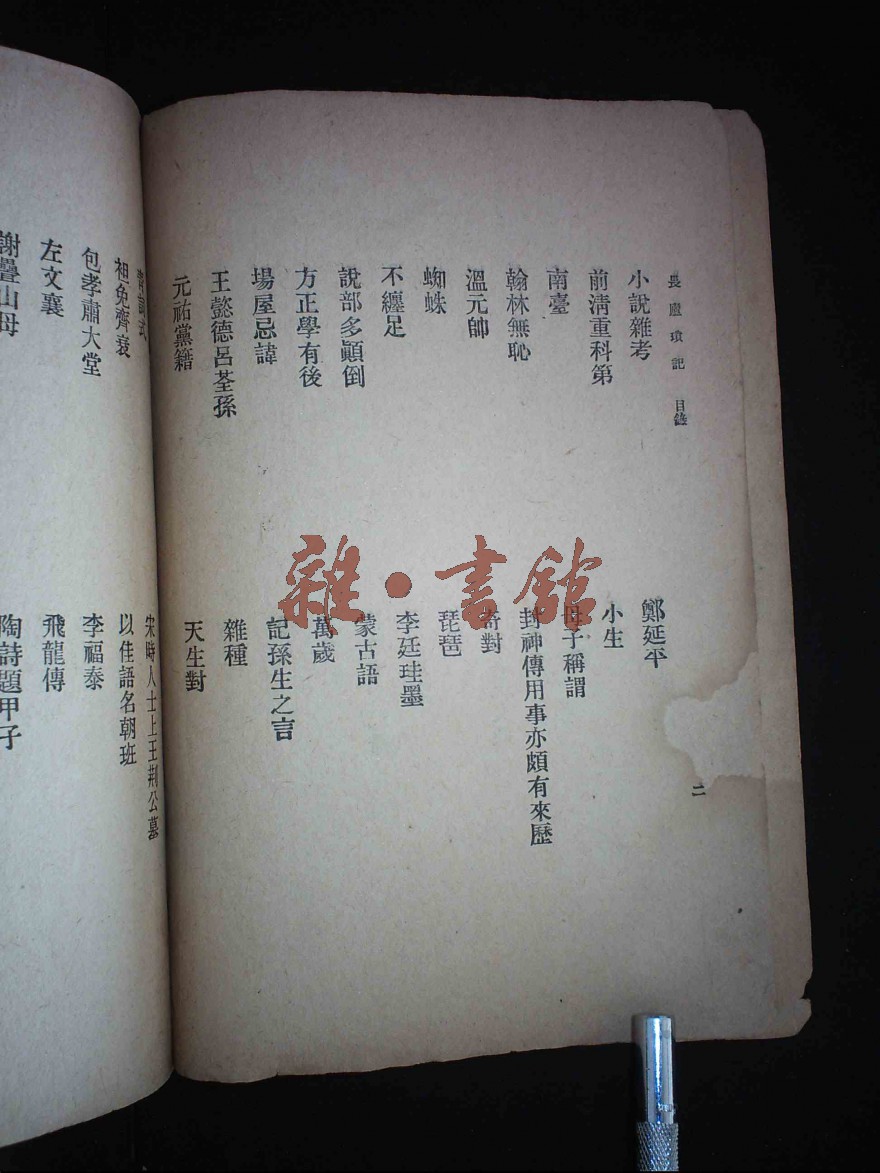 長廬瑣記 目錄
二
小說雜考
前清重科第
南臺
翰林無恥
溫元帥
蜘蛛
不纏足
說部多顚倒
方正學有後
場屋忌諱
王懿德呂荃孫
元祐黨籍
鄭延平
小生
母子稱謂
封神傳用事亦頗有來歷
奇對
琵琶
李廷珪墨
蒙古語
萬歲
記孫生之言
雜種
天生對
袒免齊衰
包孝肅大堂
左文襄
謝疊山母
宋時人士上王荆公墓
以佳語名朝班
李福泰
飛龍傳
陶詩題甲子
雜·書館